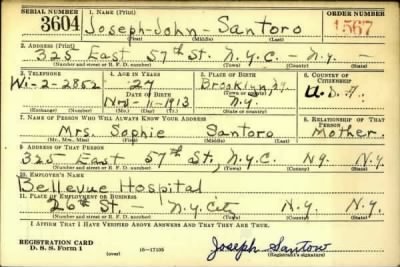 SERIAL NUMBER 1. NAME (Print) ORDER NUMBER
3604 Joseph - John - Santoro 1567
(First) (Middle) (Last)
2. ADDRESS (Print)
325 East 57th St. N.Y.C. - N.Y. -
(Number and street or R. F. D. number) (Town) (County) (State)
3. TELEPHONE 4. AGE IN YEARS 5. PLACE OF BIRTH 6. COUNTRY OF CITIZENSHIP
Wi-2-2852 27 Brooklyn U.S.A.
DATE OF BIRTH
11-1913 N.Y.
(Exchange) (Number) (Mo.) (Day) (Yr.) (Town) (County) (State or country)
7. NAME OF PERSON WHO WILL ALWAYS KNOW YOUR ADDRESS 8. RELATIONSHIP OF THAT PERSON
Mrs. Sophie Santoro Mother.
(Mr., Mrs., Miss) (First) (Middle) (Last)
9. ADDRESS OF THAT PERSON
325 East 57th St., N.Y.C. N.Y. N.Y.
(Number and street or R. F. D. number) (Town) (County) (State)
10. EMPLOYER'S NAME
Bellevue Hospital
11. PLACE OF EMPLOYMENT OR BUSINESS
26th St. - N.Y. City N.Y. N.Y.
(Number and street or R. F. D. number) (Town) (County) (State)
I AFFIRM THAT I HAVE VERIFIED ABOVE ANSWERS AND THAT THEY ARE TRUE.
REGISTRATION CARD
D. S. S. Form 1 16-17105 Joseph Santoro
(over) (Registrant's signature)